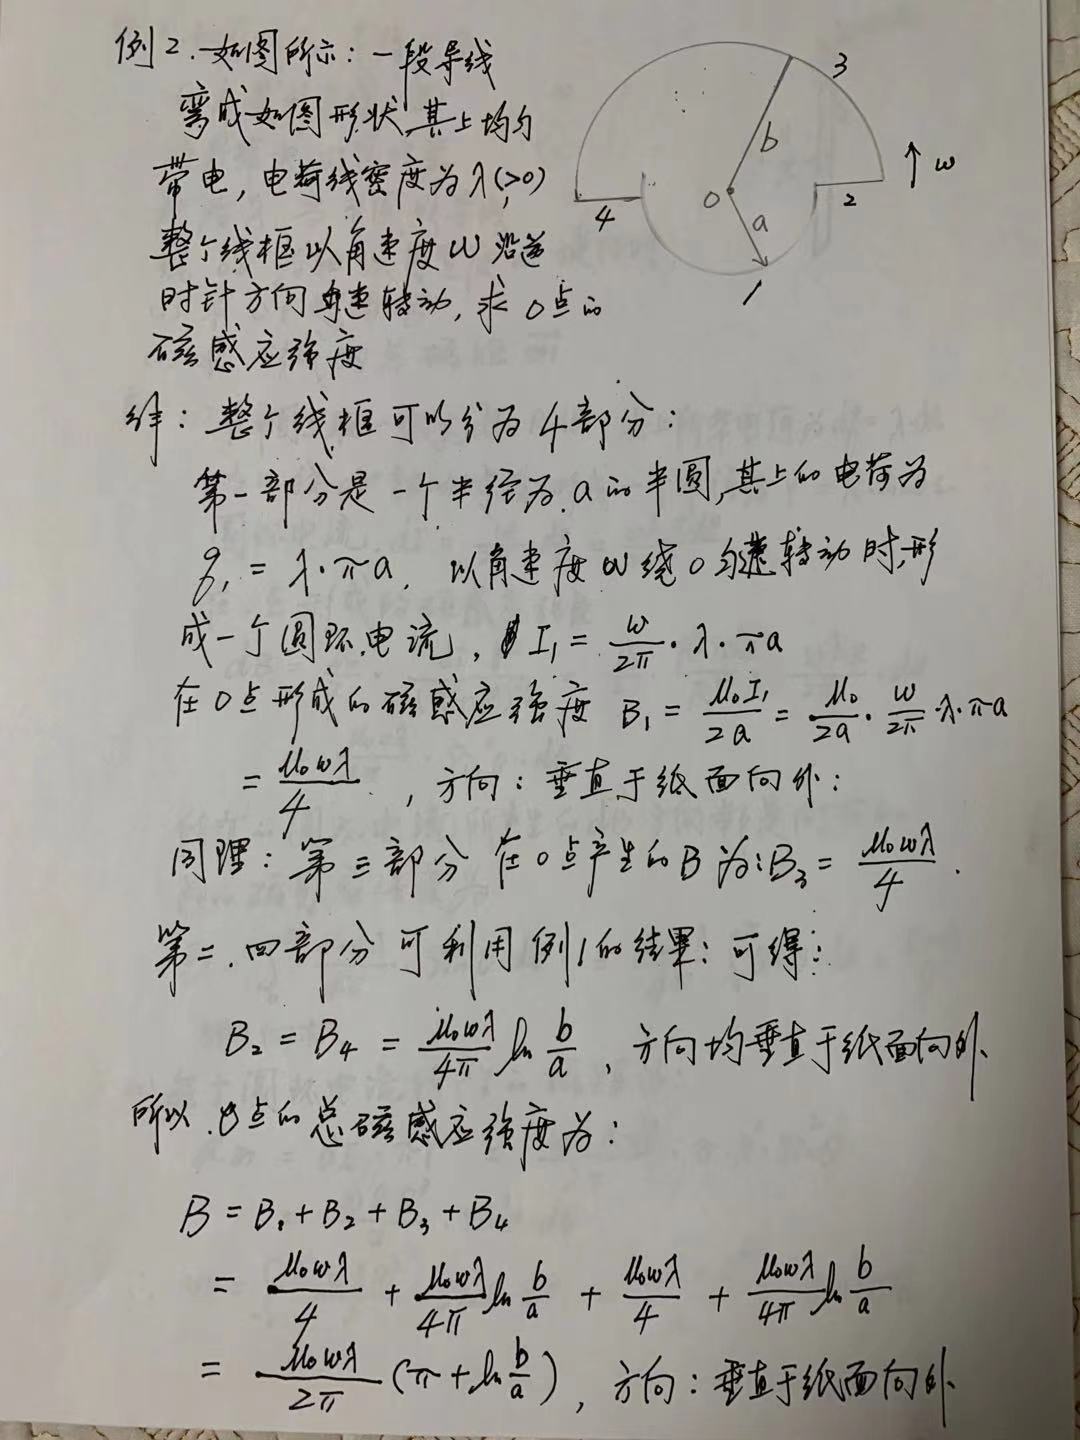 例2.如图所示:一段导线
弯成如图形状,其上均匀
带电,电荷线密度为λ(>0)
整个线框以角速度ω沿逆
时针方向匀速转动,求O点的
磁感应强度
3
b
ω
O
a
4
2
1
解:整个线框可以分为4部分:
第一部分是一个半径为a的半圆,其上的电荷为
q₁ = λ·πa, 以角速度ω绕O匀速转动时,形
成一个圆环电流, I₁ = ω/2π · λ · πa
在O点形成的磁感应强度 B₁ = μ₀I₁/2a = μ₀/2a · ω/2π · λ·πa
= μ₀ωλ/4 , 方向:垂直于纸面向外:
同理:第三部分在O点产生的B为:B₃ = μ₀ωλ/4 .
第二.四部分可利用例1的结果:可得:
B₂ = B₄ = μ₀ωλ/4π ln b/a , 方向均垂直于纸面向外.
所以.O点的总磁感应强度为:
B = B₁ + B₂ + B₃ + B₄
= μ₀ωλ/4 + μ₀ωλ/4π ln b/a + μ₀ωλ/4 + μ₀ωλ/4π ln b/a
= μ₀ωλ/2π (π + ln b/a) , 方向:垂直于纸面向外.